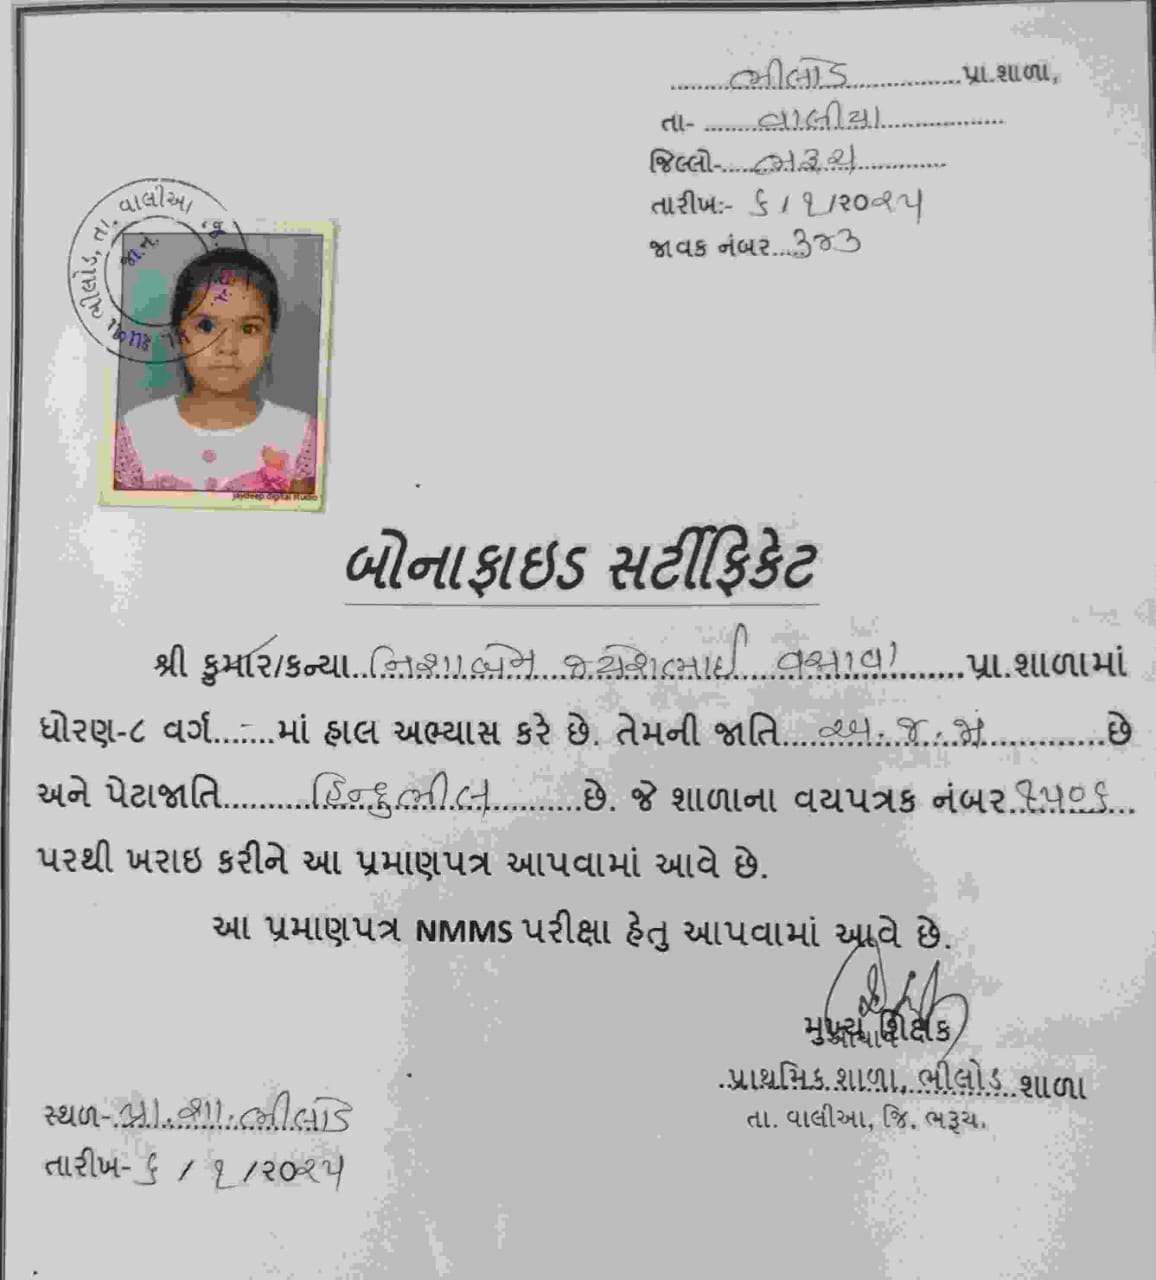 ભીલોડ પ્રા.શાળા,
તા- વાલીયા
જિલ્લો- ભરૂચ
તારીખ:- ૬ / ૧ / ૨૦૨૫
જાવક નંબર... ૩૪૩
ભીલોડ, તા. વાલીઆ
jaydeep digital studio
બોનાફાઇડ સર્ટીફિકેટ
શ્રી કુમાર/કન્યા.. નિશાબેન જયેશભાઈ વસાવા પ્રા.શાળામાં
ધોરણ-૮ વર્ગ.... - ...માં હાલ અભ્યાસ કરે છે. તેમની જાતિ.... અ.જ.જા ....છે
અને પેટાજાતિ.... હિન્દુભીલ ....છે. જે શાળાના વયપત્રક નંબર.. ૧૫૦૬ ...
પરથી ખરાઇ કરીને આ પ્રમાણપત્ર આપવામાં આવે છે.
આ પ્રમાણપત્ર NMMS પરીક્ષા હેતુ આપવામાં આવે છે.
મુખ્ય શિક્ષક
પ્રાથમિક શાળા, ભીલોડ શાળા
તા. વાલીઆ, જિ. ભરૂચ.
સ્થળ- પ્રા.શા. ભીલોડ
તારીખ- ૬ / ૧ / ૨૦૨૫